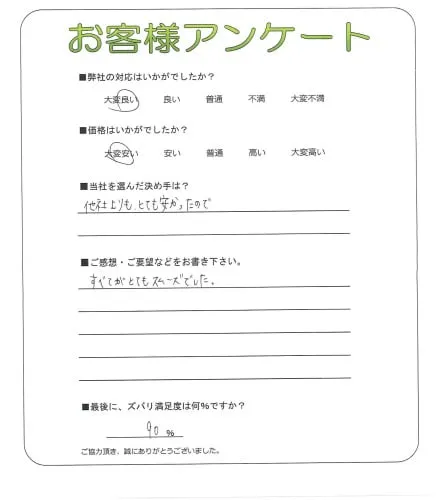 お客様アンケート
■弊社の対応はいかがでしたか？
大変良い　良い　普通　不満　大変不満
■価格はいかがでしたか？
大変安い　安い　普通　高い　大変高い
■当社を選んだ決め手は？
他社よりも、とても安かったので
■ご感想・ご要望などをお書き下さい。
すべてがとてもスムーズでした。
■最後に、ズバリ満足度は何％ですか？
90 ％
ご協力頂き、誠にありがとうございました。